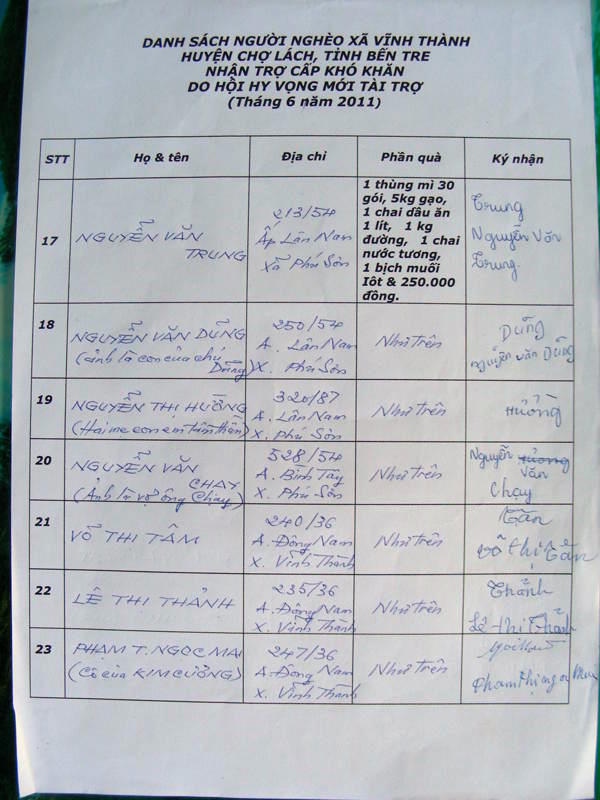 DANH SÁCH NGƯỜI NGHÈO XÃ VĨNH THÀNH
HUYỆN CHỢ LÁCH, TỈNH BẾN TRE
NHẬN TRỢ CẤP KHÓ KHĂN
DO HỘI HY VỌNG MỚI TÀI TRỢ
(Tháng 6 năm 2011)
STT
Họ & tên
Địa chỉ
Phần quà
Ký nhận
17
NGUYỄN VĂN
TRUNG
213/54
Ấp Lân Nam
Xã Phú Sơn
1 thùng mì 30
gói, 5kg gạo,
1 chai dầu ăn
1 lít, 1 kg
đường, 1 chai
nước tương,
1 bịch muối
Iôt & 250.000
đồng.
Trung
Nguyễn Văn
Trung.
18
NGUYỄN VĂN DŨNG
(ảnh là con của chú
Dũng)
250/54
A. Lân Nam
X. Phú Sơn
Như trên
Dũng
nguyễn văn Dũng
19
NGUYỄN THỊ HƯỜNG
(Hai mẹ con em tâm thần)
320/87
A. Lân Nam
X. Phú Sơn
Như trên
Hường
20
NGUYỄN VĂN
CHẠY
(Ảnh là vợ ông Chạy)
528/54
A. Bình Tây
X. Phú Sơn
Như trên
Nguyễn
Văn
Chạy
21
VÕ THỊ TÂM
240/36
A. Đông Nam
X. Vĩnh Thành
Như trên
võ thị
22
LÊ THỊ THẢNH
235/36
A. Đông Nam
X. Vĩnh Thành
Như trên
Thảnh
Lê thị Thảnh
23
PHẠM T. NGỌC MAI
(Cô của KIM CƯỜNG)
247/36
A. Đông Nam
X. Vĩnh Thành
Như trên
Phạm thị ngọc Mai